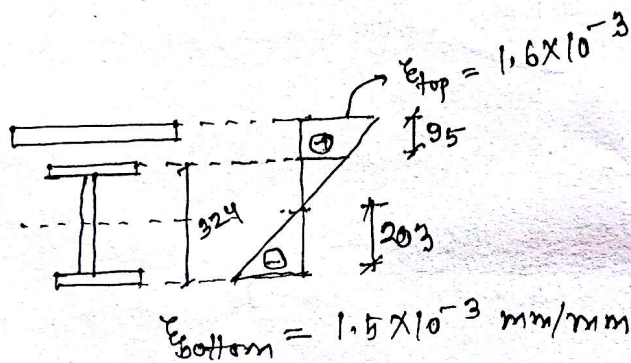 ε_top = 1.6×10⁻³
⊕
95
324
203
⊖
ε_bottom = 1.5×10⁻³ mm/mm